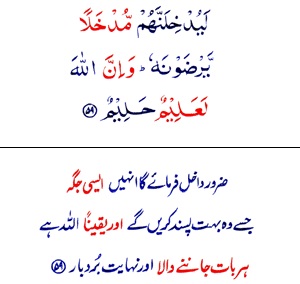 لَيُدْخِلَنَّهُمْ مُّدْخَلًا
يَّرْضَوْنَهٗ ؕ وَاِنَّ اللّٰهَ
لَعَلِيْمٌ حَلِيْمٌ ﴿۵۹﴾
ضرور داخل فرمائے گا انہیں ایسی جگہ
جسے وہ بہت پسند کریں گے اور یقیناً اللہ ہے
ہر بات جاننے والا اور نہایت بُردبار ﴿۵۹﴾